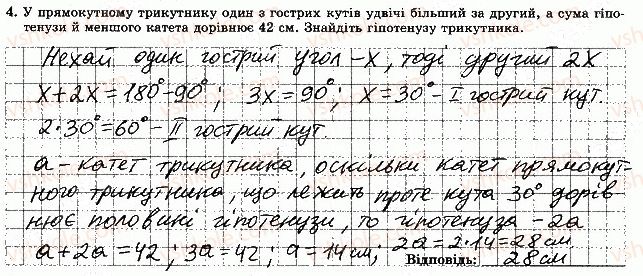 4. У прямокутному трикутнику один з гострих кутів удвічі більший за другий, а сума гіпо-
тенузи й меншого катета дорівнює 42 см. Знайдіть гіпотенузу трикутника.
Нехай один гострий угол -x, тоді другий 2x
x+2x=180°-90°; 3x=90°; x=30°-I гострий кут.
2·30°=60°-II гострий кут.
a-катет трикутника, оскільки катет прямокут-
ного трикутника, що лежить проте кута 30° дорів-
нює половині гіпотенузи, то гіпотенуза -2a
a+2a=42; 3a=42; a=14см; 2a=2·14=28см
Відповідь: 28см